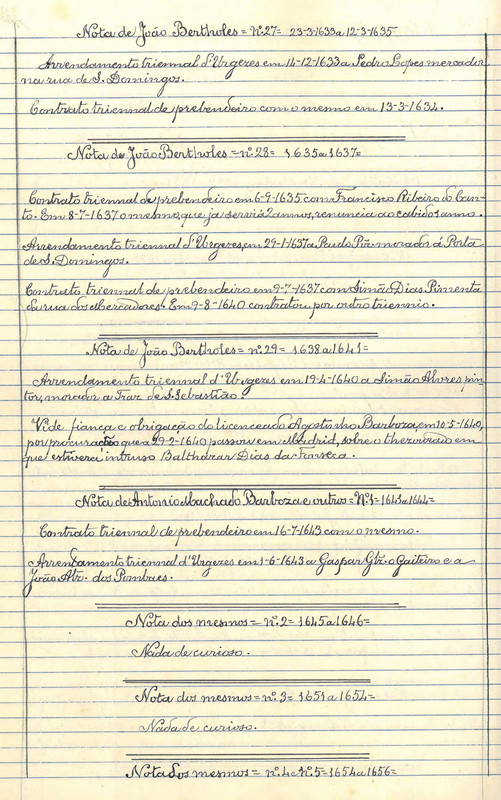 Nota de João Bertholes = nº 27 = 23-3-1633 a 12-3-1635
Arrendamento triennal d'Urgezes em 14-12-1633 a Pedro Lopes mercador
na rua de S. Domingos.
Contrato triennal de prebendeiro com o mesmo em 13-3-1634.
Nota de João Bertholes = nº 28 = 1635 a 1637 =
Contrato triennal de prebendeiro em 6-9-1635 com Francisco Ribeiro do Can-
to. Em 8-7-1637 o mesmo, que já servia 2 annos, renuncia ao cabido 1 anno.
Arrendamento triennal d'Urgezes, em 29-1-1637 a Paulo Piz morador á Porta
de S. Domingos.
Contrato triennal de prebendeiro em 9-7-1637 com Simão Dias Pimenta
da rua dos Mercadores. Em 9-8-1640 contratou por outro triennio.
Nota de João Bertholes = nº 29 = 1638 a 1641 =
Arrendamento triennal d'Urgezes em 19-4-1640 a Simão Alvres pin-
tor, morador a Traz de S. Sebastião.
Vide fiança e obrigação do licenceado Agostinho Barboza, em 10-5-1640,
por procuração que a 29-2-1640 passou em Madrid, sobre o thezorado em
que estivera intruso Balthazar Dias da Fonseca.
Nota de Antonio Machado Barboza e outros = Nº 1 = 1643 a 1644 =
Contrato triennal de prebendeiro em 16-7-1643 com o mesmo.
Arrendamento triennal d'Urgezes em 1-6-1643 a Gaspar Glz. o Gaiteiro e a
João Alz. dos Pombaes.
Nota dos mesmos = nº 2 = 1645 a 1646 =
Nada de curioso.
Nota dos mesmos = nº 3 = 1651 a 1654 =
Nada de curioso.
Nota dos mesmos = nº 4 e nº 5 = 1654 a 1656 =